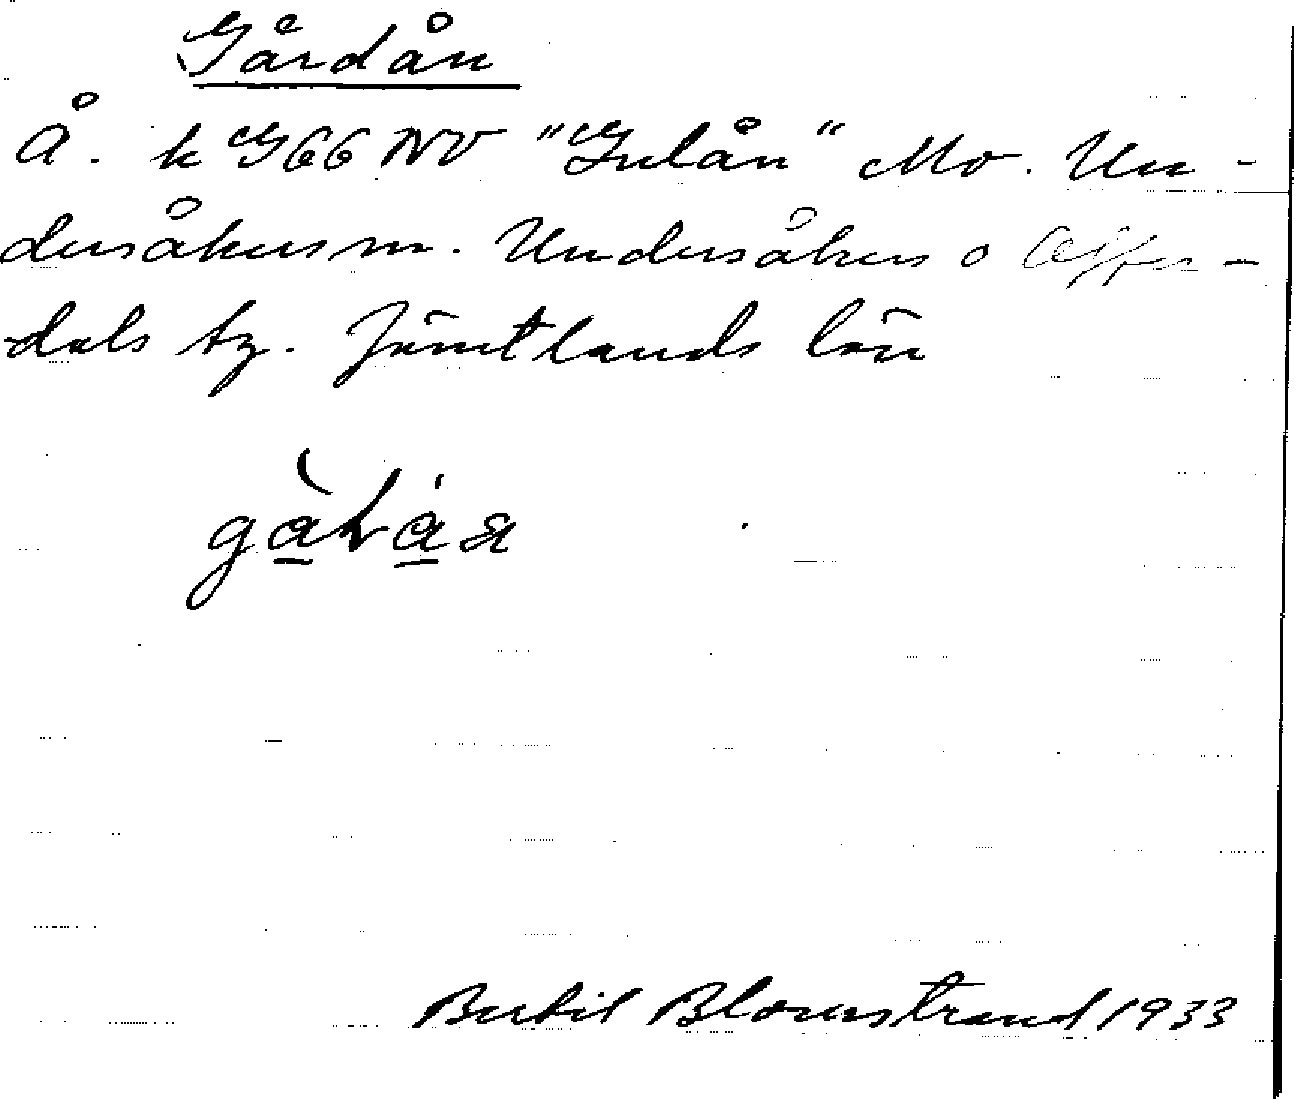 Gårdån
Å. k G66 NV "Gulån" Mo. Un-
dersåkers sn. Undersåkers o Offer-
dals tg. Jämtlands län
Bertil Blomstrand 1933